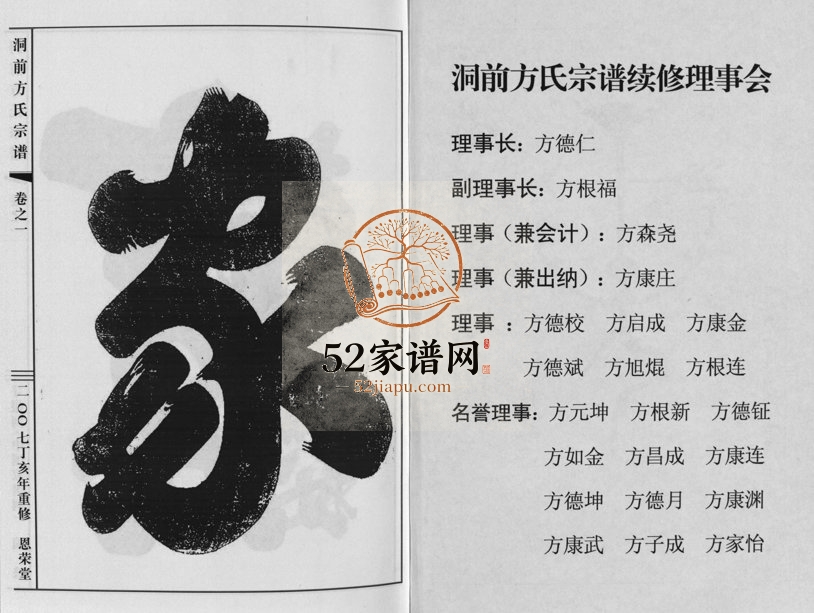 洞前方氏宗谱
卷之一
二〇〇七丁亥年重修 恩荣堂
家
洞前方氏宗谱续修理事会
理事长：方德仁
副理事长：方根福
理事（兼会计）：方森尧
理事（兼出纳）：方康庄
理事 ：方德校 方启成 方康金
方德斌 方旭焜 方根连
名誉理事：方元坤 方根新 方德钲
方如金 方昌成 方康连
方德坤 方德月 方康渊
方康武 方子成 方家怡
52家谱网
52jiapu.com